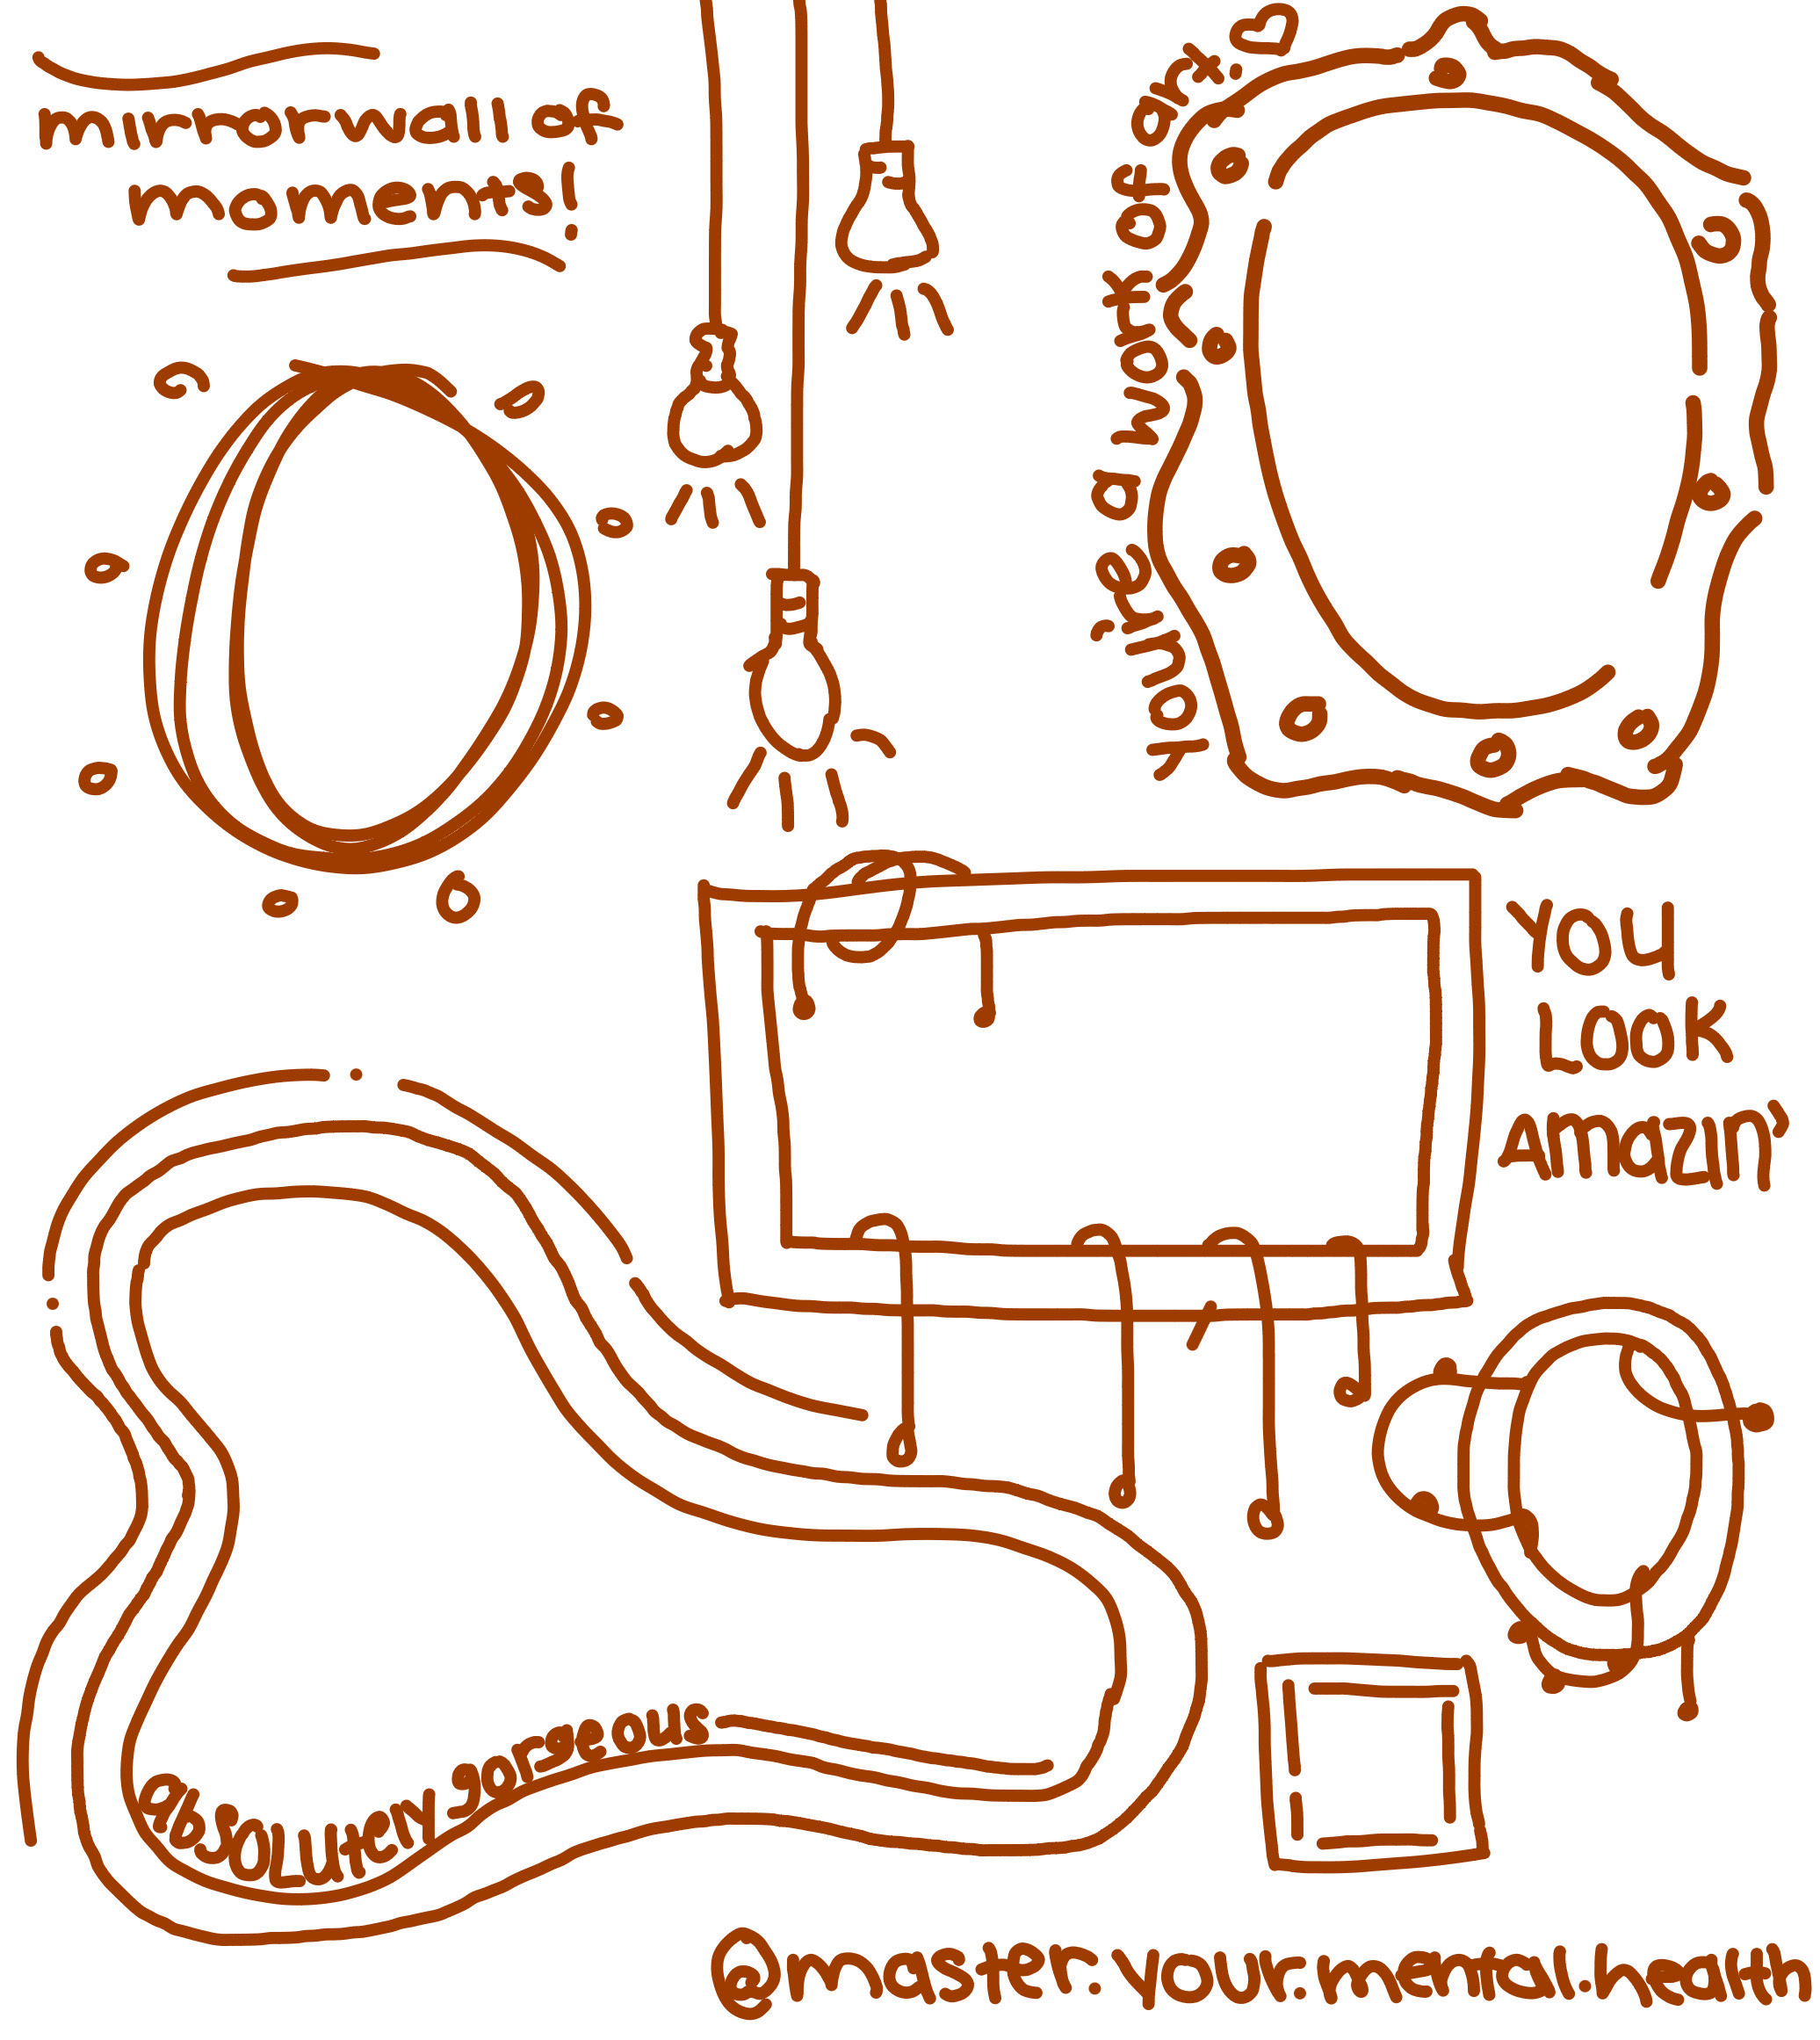 mirrorwall of
moments!
you're a work of art: ♡
YOU
LOOK
AMAZIN'
absolutely gorgeous
@master.your.mental.health